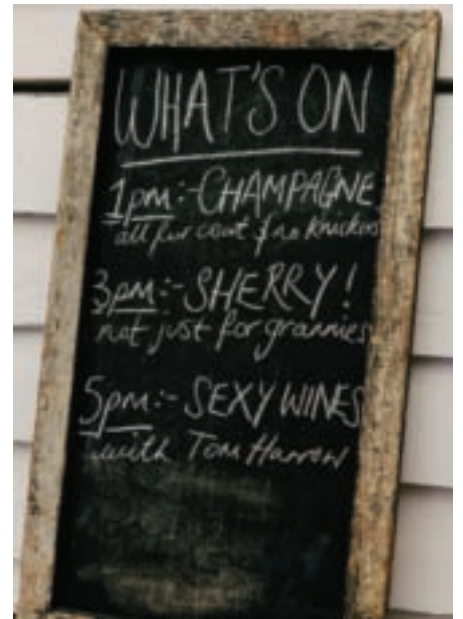 WHAT'S ON
1pm:- CHAMPAGNE
all fur coat & no knickers
3pm:- SHERRY!
not just for grannies
5pm:- SEXY WINES
with Tom Harrow